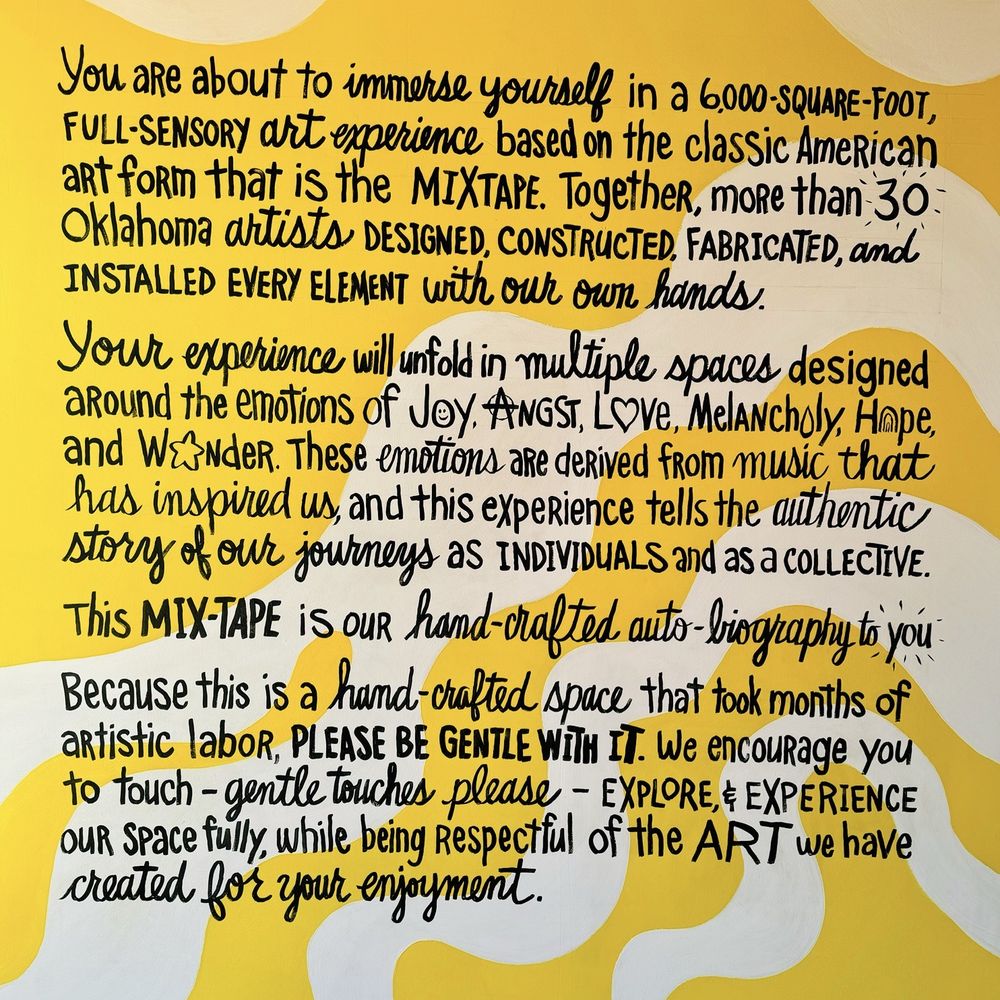 You are about to immerse yourself in a 6,000-SQUARE-FOOT,
FULL-SENSORY art experience based on the classic American
art form that is the MIXTAPE. Together, more than 30
Oklahoma artists DESIGNED, CONSTRUCTED, FABRICATED, and
INSTALLED EVERY ELEMENT with our own hands.
Your experience will unfold in multiple spaces designed
around the emotions of Joy, ANGST, LOVE, Melancholy, Hope,
and Wonder. These emotions are derived from music that
has inspired us, and this experience tells the authentic
story of our journeys as INDIVIDUALS and as a COLLECTIVE.
This MIX-TAPE is our hand-crafted auto-biography to you
Because this is a hand-crafted space that took months of
artistic labor, PLEASE BE GENTLE WITH IT. We encourage you
to touch – gentle touches please – EXPLORE, & EXPERIENCE
our space fully, while being respectful of the ART we have
created for your enjoyment.